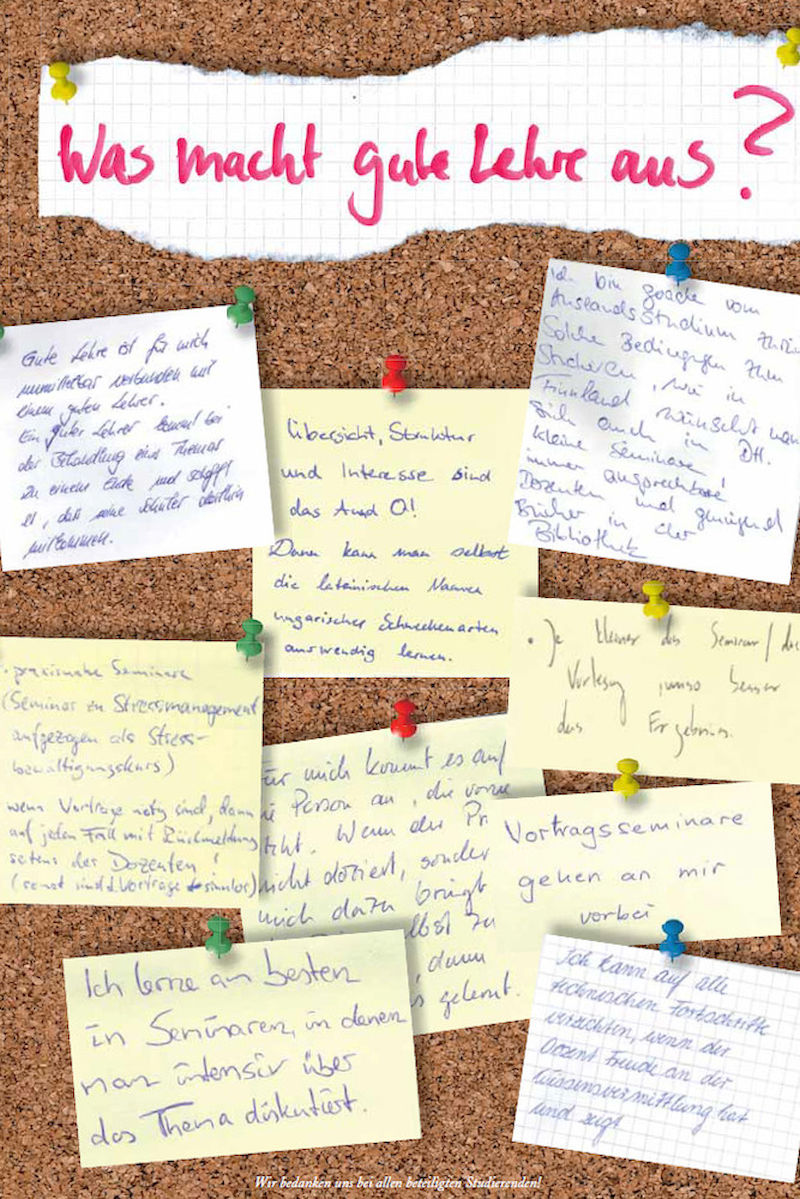 Was macht gute Lehre aus?
Gute Lehre ist für mich
unmittelbar verbunden mit
einem guten Lehrer.
Ein guter Lehrer kommt bei
der Behandlung eines Themas
zu einem Ende und schafft
es, daß seine Schüler dorthin
mitkommen.
Übersicht, Struktur
und Interesse sind
das A und O!
Dann kann man selbst
die lateinischen Namen
ungarischer Schneckenarten
auswendig lernen.
Ich bin gerade vom
Auslandsstudium zurück
Solche Bedingungen zum
Studieren, wie in
Finnland wünscht man
sich auch in Dtl.
kleine Seminare!
immer ansprechbare
Dozenten und genügend
Bücher in der
Bibliothek
• praxisnahe Seminare
(Seminar zu Stressmanagement
aufgezogen als Stress-
bewältigungskurs)
wenn Vorträge nötig sind, dann
auf jeden Fall mit Rückmeldung
seitens des Dozenten!
(sonst sind d. Vorträge sinnlos)
• Je kleiner das Seminar/die
Vorlesung umso besser
das Ergebnis.
Für mich kommt es auf
die Person an, die vorne
steht. Wenn der Pr
nicht doziert, sonder
mich dazu bringt
selbst zu
, dann
s gelernt.
Vortragsseminare
gehen an mir
vorbei
Ich lerne am besten
in Seminaren, in denen
man intensiv über
das Thema diskutiert.
Ich kann auf alle
technischen Fortschritte
verzichten, wenn der
Dozent Freude an der
Wissensvermittlung hat
und zeigt
Wir bedanken uns bei allen beteiligten Studierenden!